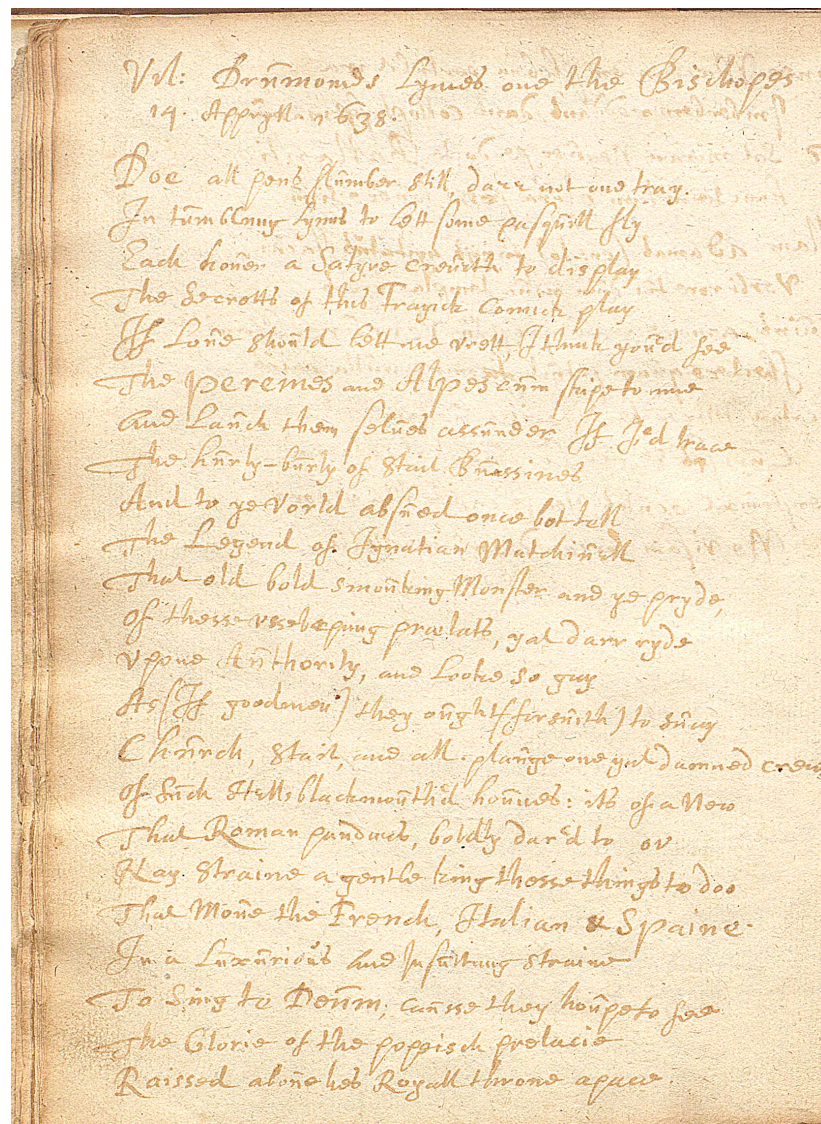 Vil: Drummonds Lynes one the Bischopes
14. Appryll. 1638.
Doe all pens slumber still, darr not one tray.
In tumbling lynes to lett some pasquell fly
Each houer a Satyre creueth to display
The Secretts of this Tragick Comick play
If Loue should lett me vrett, I think you'd see
The Peremes and Alpes cum skipe to me
And Lauch them selues assunder If I'd trace
The hurly-burly of Stait Bussines
And to ye Vorld absued once bot tell
The Legend of Ignatian Matchiuell
That old bold smouking Monster and ye pryde,
Of thesse vsseping prælats, yat darr ryde
Vpone Authority, and Looke so gay
As (If goodmen) they ought (forsuith) to suay
Church, Stait, and all. plauge one yat damned creu,
Of Such Hells blackmouth'd houues: its of a New
That Roman pandurs, boldly dar'd to ov
Nay Straine a gentle king thesse things to doo
That Moue the French, Italian & Spaine.
In a Luxurious and Insulting Straine
To Sing te Deum; causse they houpe to see
The Glorie of the poppisch prelacie
Raissed aboue hes Royall throne apace.